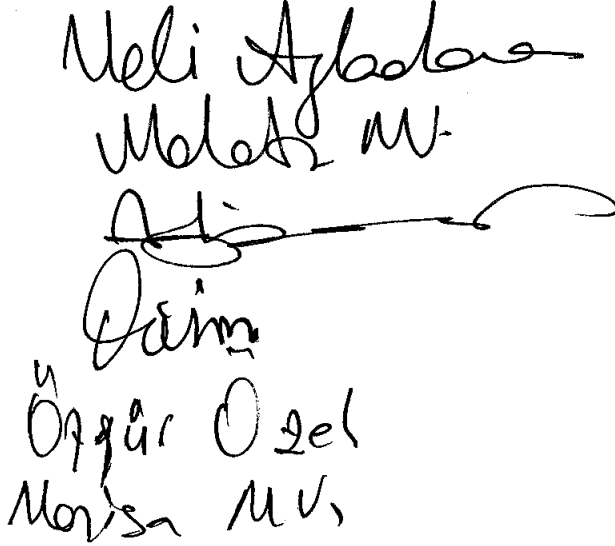 Veli Ağbaba
Malatya MV.
Özgür Özel
Manisa MV.